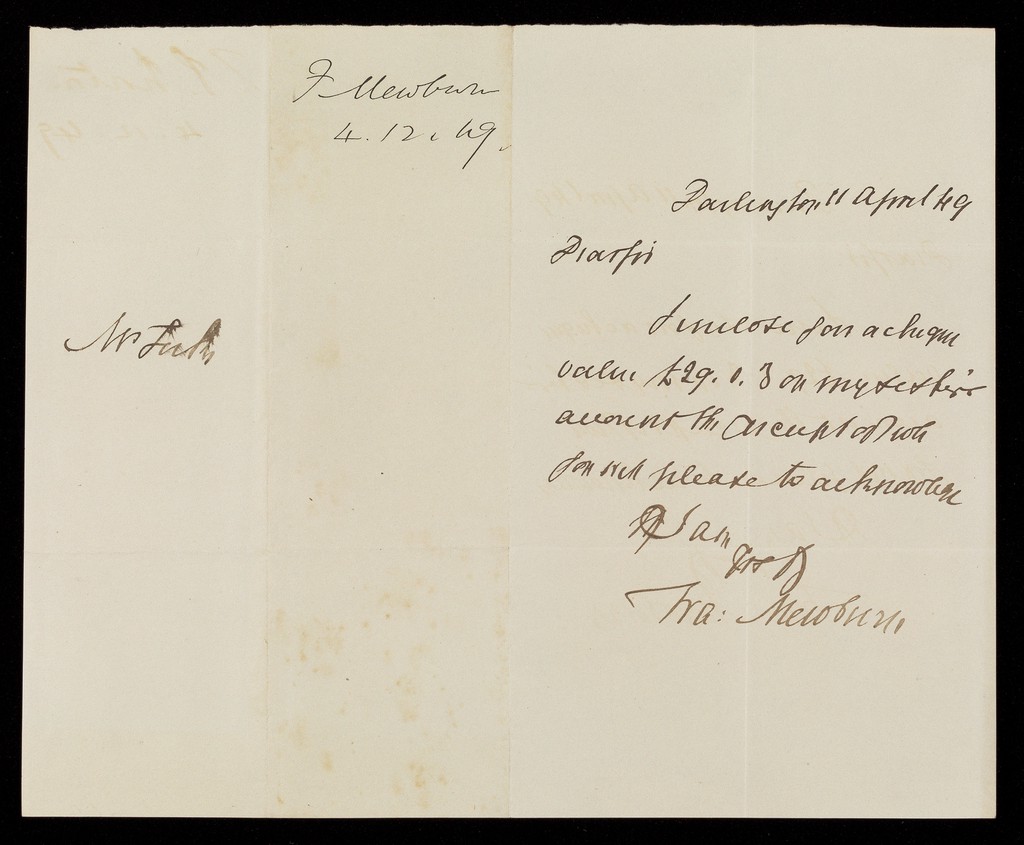 F Mewburn
4. 12. 49.
Mr
Darlington 11 April 49
Dear Sir
I enclose you a cheque
value £29. 0. 3 on my sisters
account the receipt of wch
you will please to acknowledge
I am
yrs ty
Fra: Mewburn